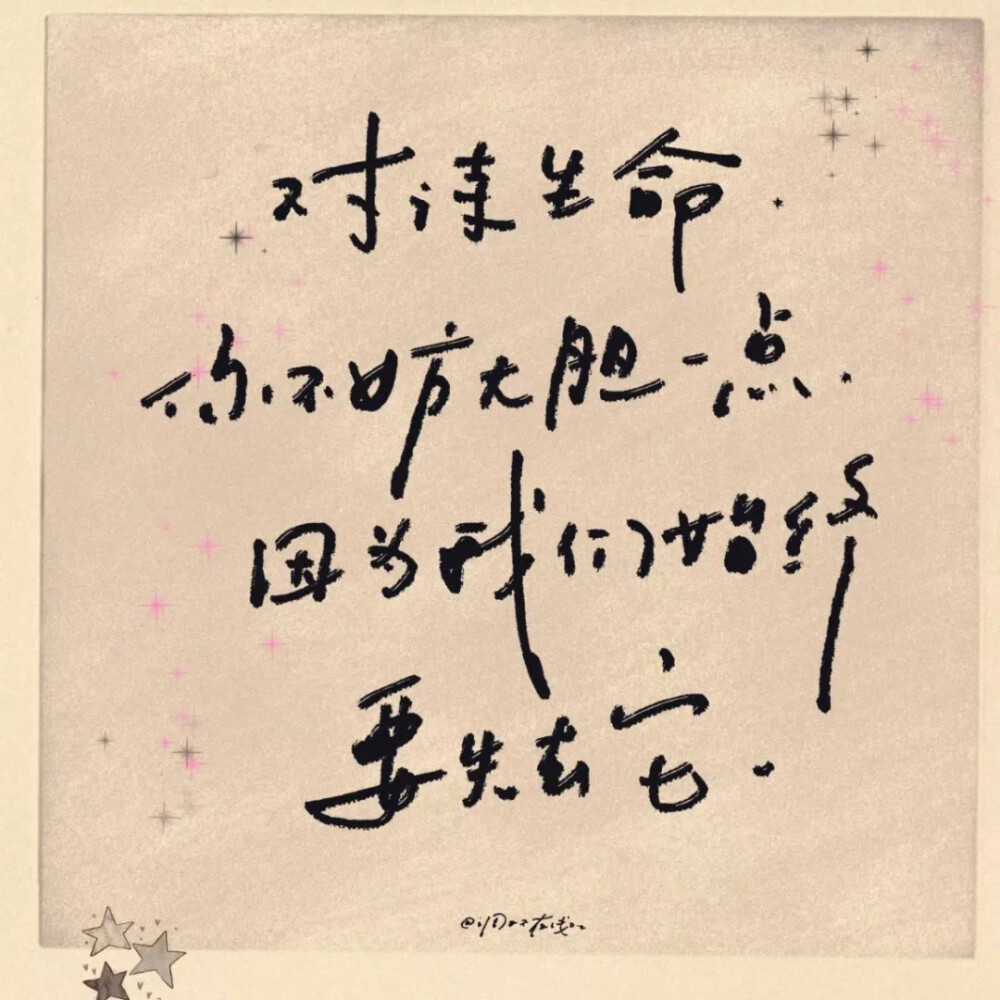 对待生命.
你不妨大胆一点.
因为我们始终
要失去它.